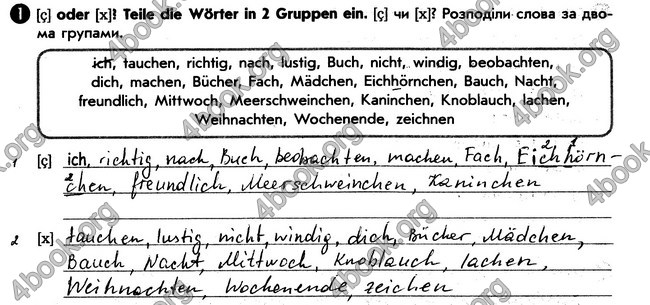 1 [ç] oder [x]? Teile die Wörter in 2 Gruppen ein. [ç] чи [x]? Розподіли слова за дво-
ма групами.
ich, tauchen, richtig, nach, lustig, Buch, nicht, windig, beobachten,
dich, machen, Bücher, Fach, Mädchen, Eichhörnchen, Bauch, Nacht,
freundlich, Mittwoch, Meerschweinchen, Kaninchen, Knoblauch, lachen,
Weihnachten, Wochenende, zeichnen
1 [ç] ich, richtig, nach, Buch, beobachten, machen, Fach, Eichhörn-
chen, freundlich, Meerschweinchen, Kaninchen
2 [x] tauchen, lustig, nicht, windig, dich, Bücher, Mädchen,
Bauch, Nacht, Mittwoch, Knoblauch, lachen,
Weihnachten, Wochenende, zeichen
4book.org